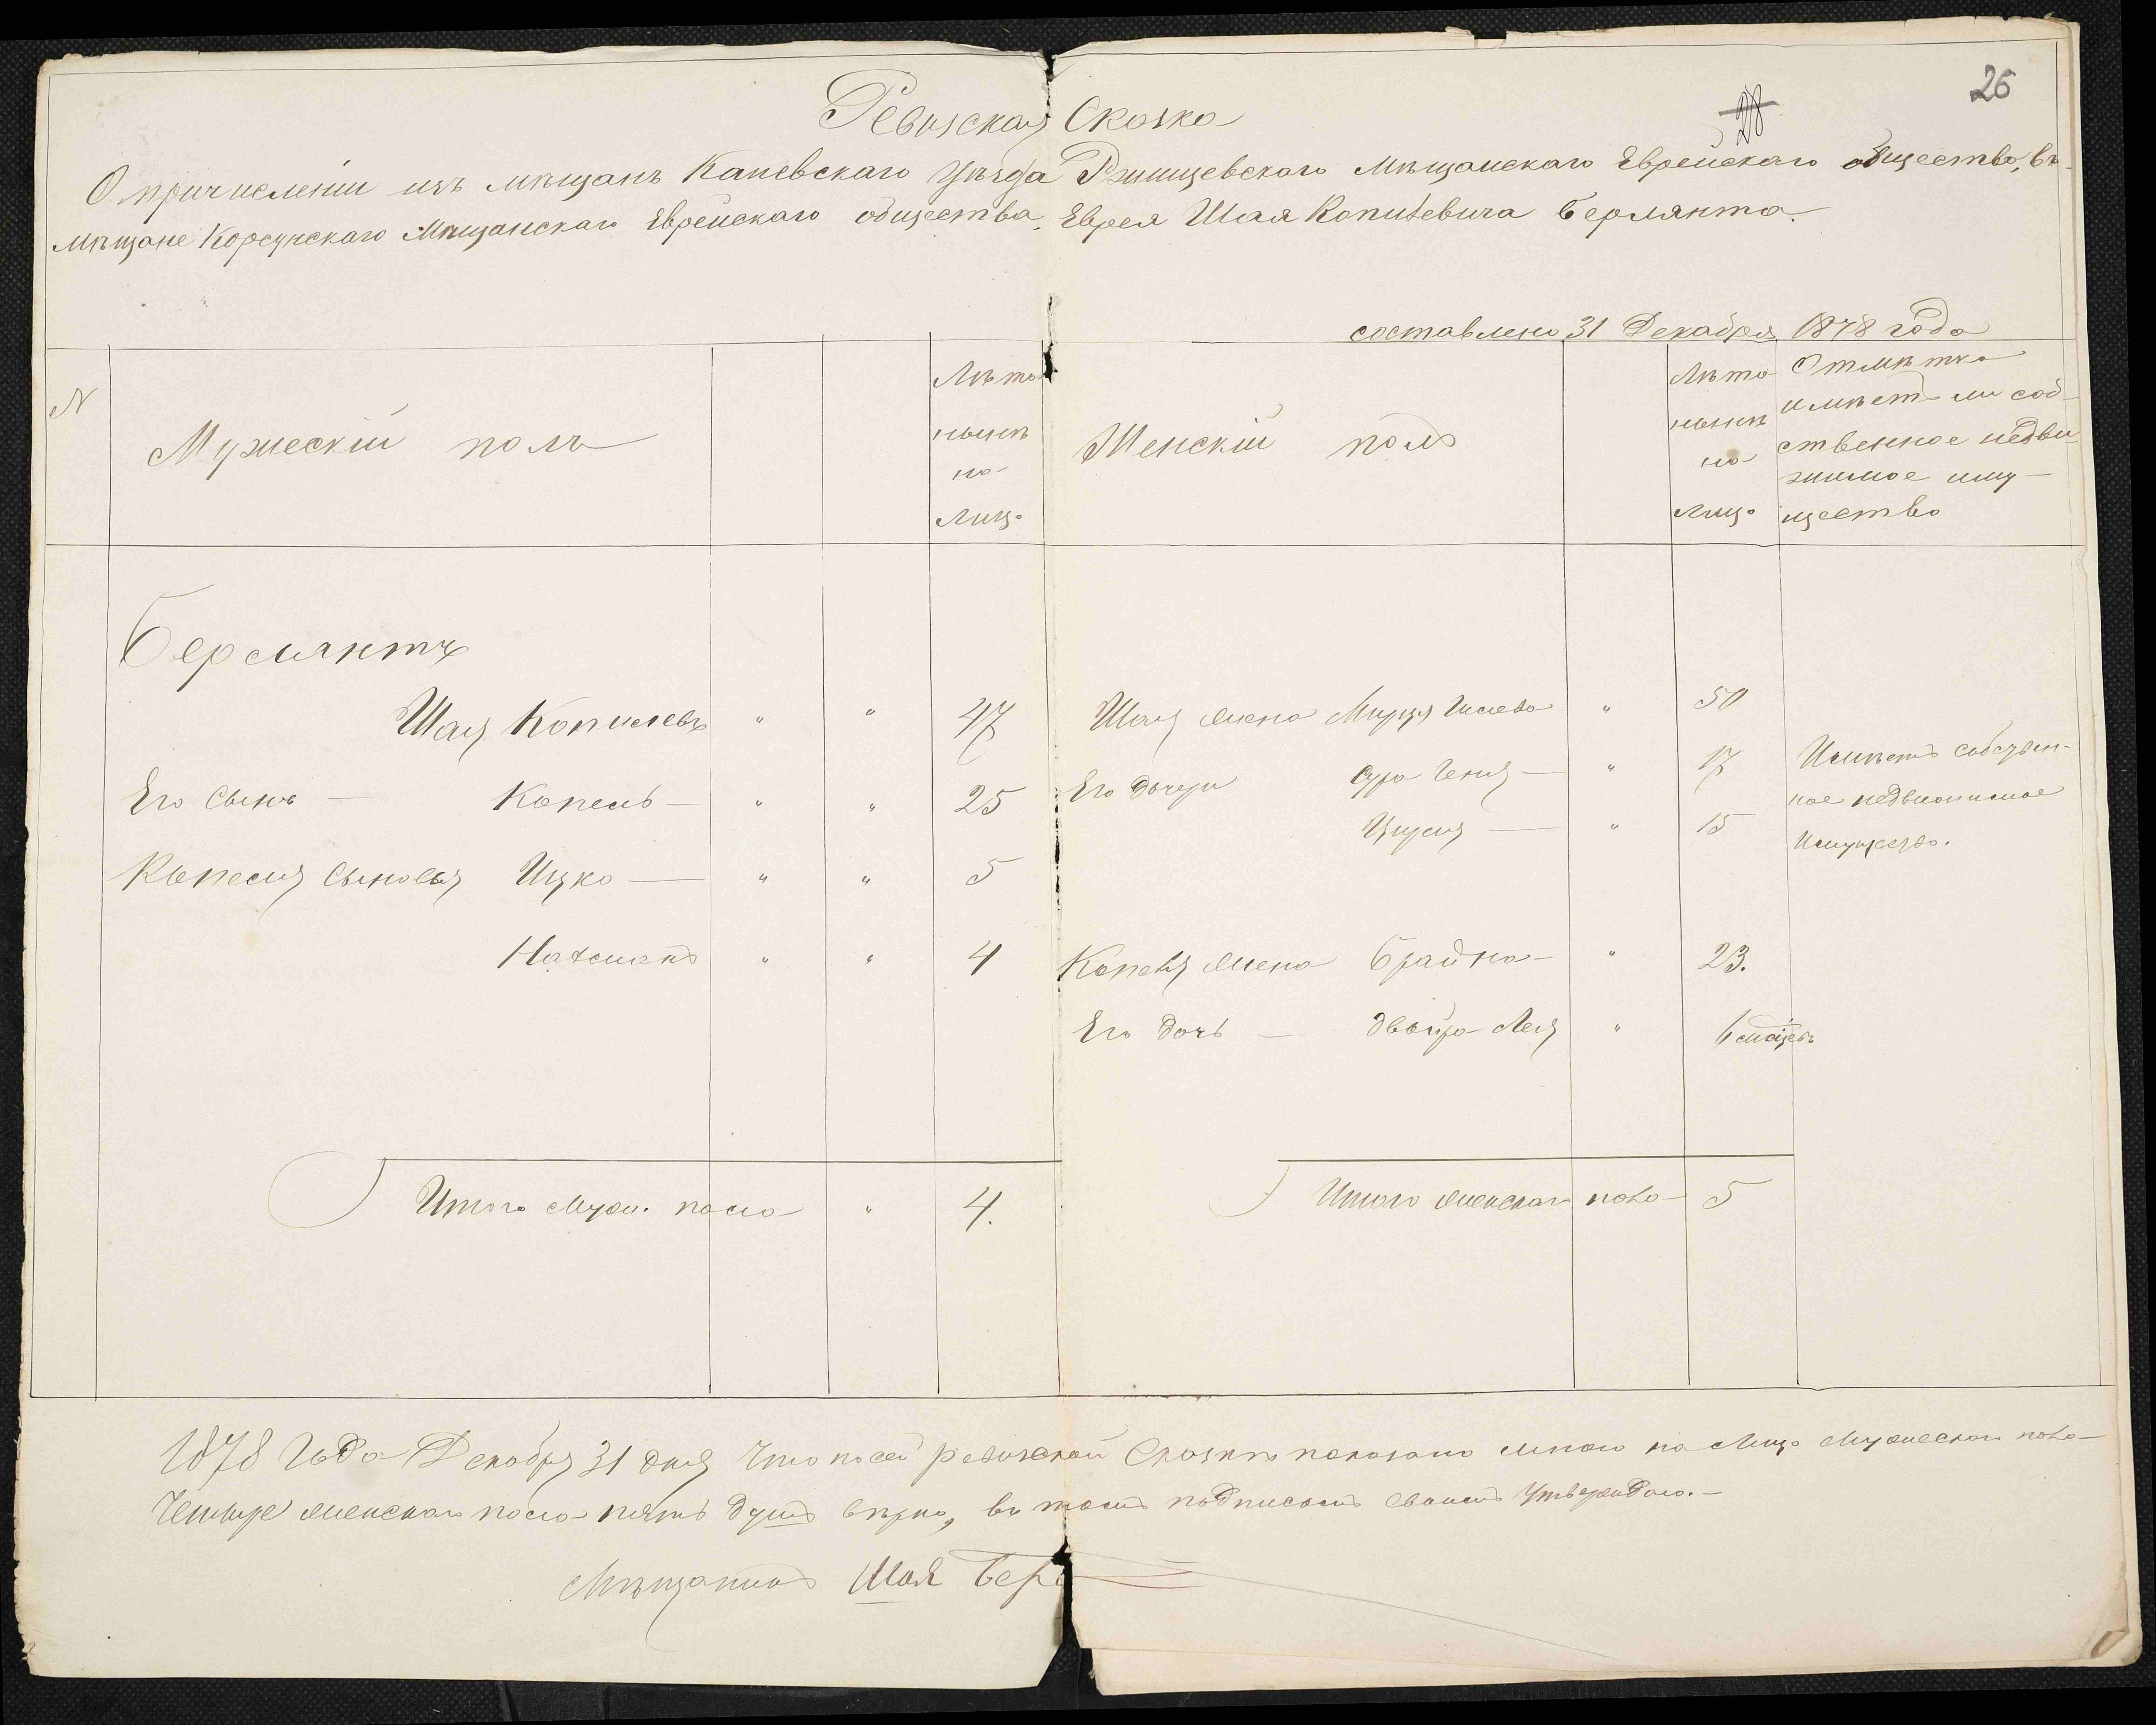 26
28
Ревизская Сказка
О причисленіи изъ мѣщанъ Каневскаго уѣзда Ржищевскаго Мѣщанскаго Еврейскаго общества, въ
мѣщане Корсунскаго Мѣщанскаго Еврейскаго общества, Еврея Шая Копилевича Берлянта.
составлено 31 Декабря 1878 года
N
Мужескій полъ
Лѣта
нынѣ
на
лицо
Женскій полъ
Лѣта
нынѣ
на
лицо
Отмѣтка
имѣетъ ли соб-
ственное недви-
жимое иму-
щество
Берлянтъ
Шая Копилевъ " " 47 Шая жена Мирля " 50
Его сынъ — Копель — " " 25 Его дочери Сура Геня — " 17 Имѣетъ собствен-
ное недвижимое
Цирля — " 15 Имущество.
Копеля сыновья Ицко — " " 5
Нахманъ " " 4 Копеля жена Брайна — " 23.
Его дочь — Двойра Лея " 6 мѣсяцевъ
Итого муж. пола " 4. Итого женскаго пола 5
1878 Года Декабря 31 дня Что по сей ревизской Сказкѣ показано мною на лицо мужескаго пола
Четыре женскаго пола пять душъ вѣрно, въ томъ подписомъ своимъ Утверждаю.—
Мѣщанинъ Шая Бер